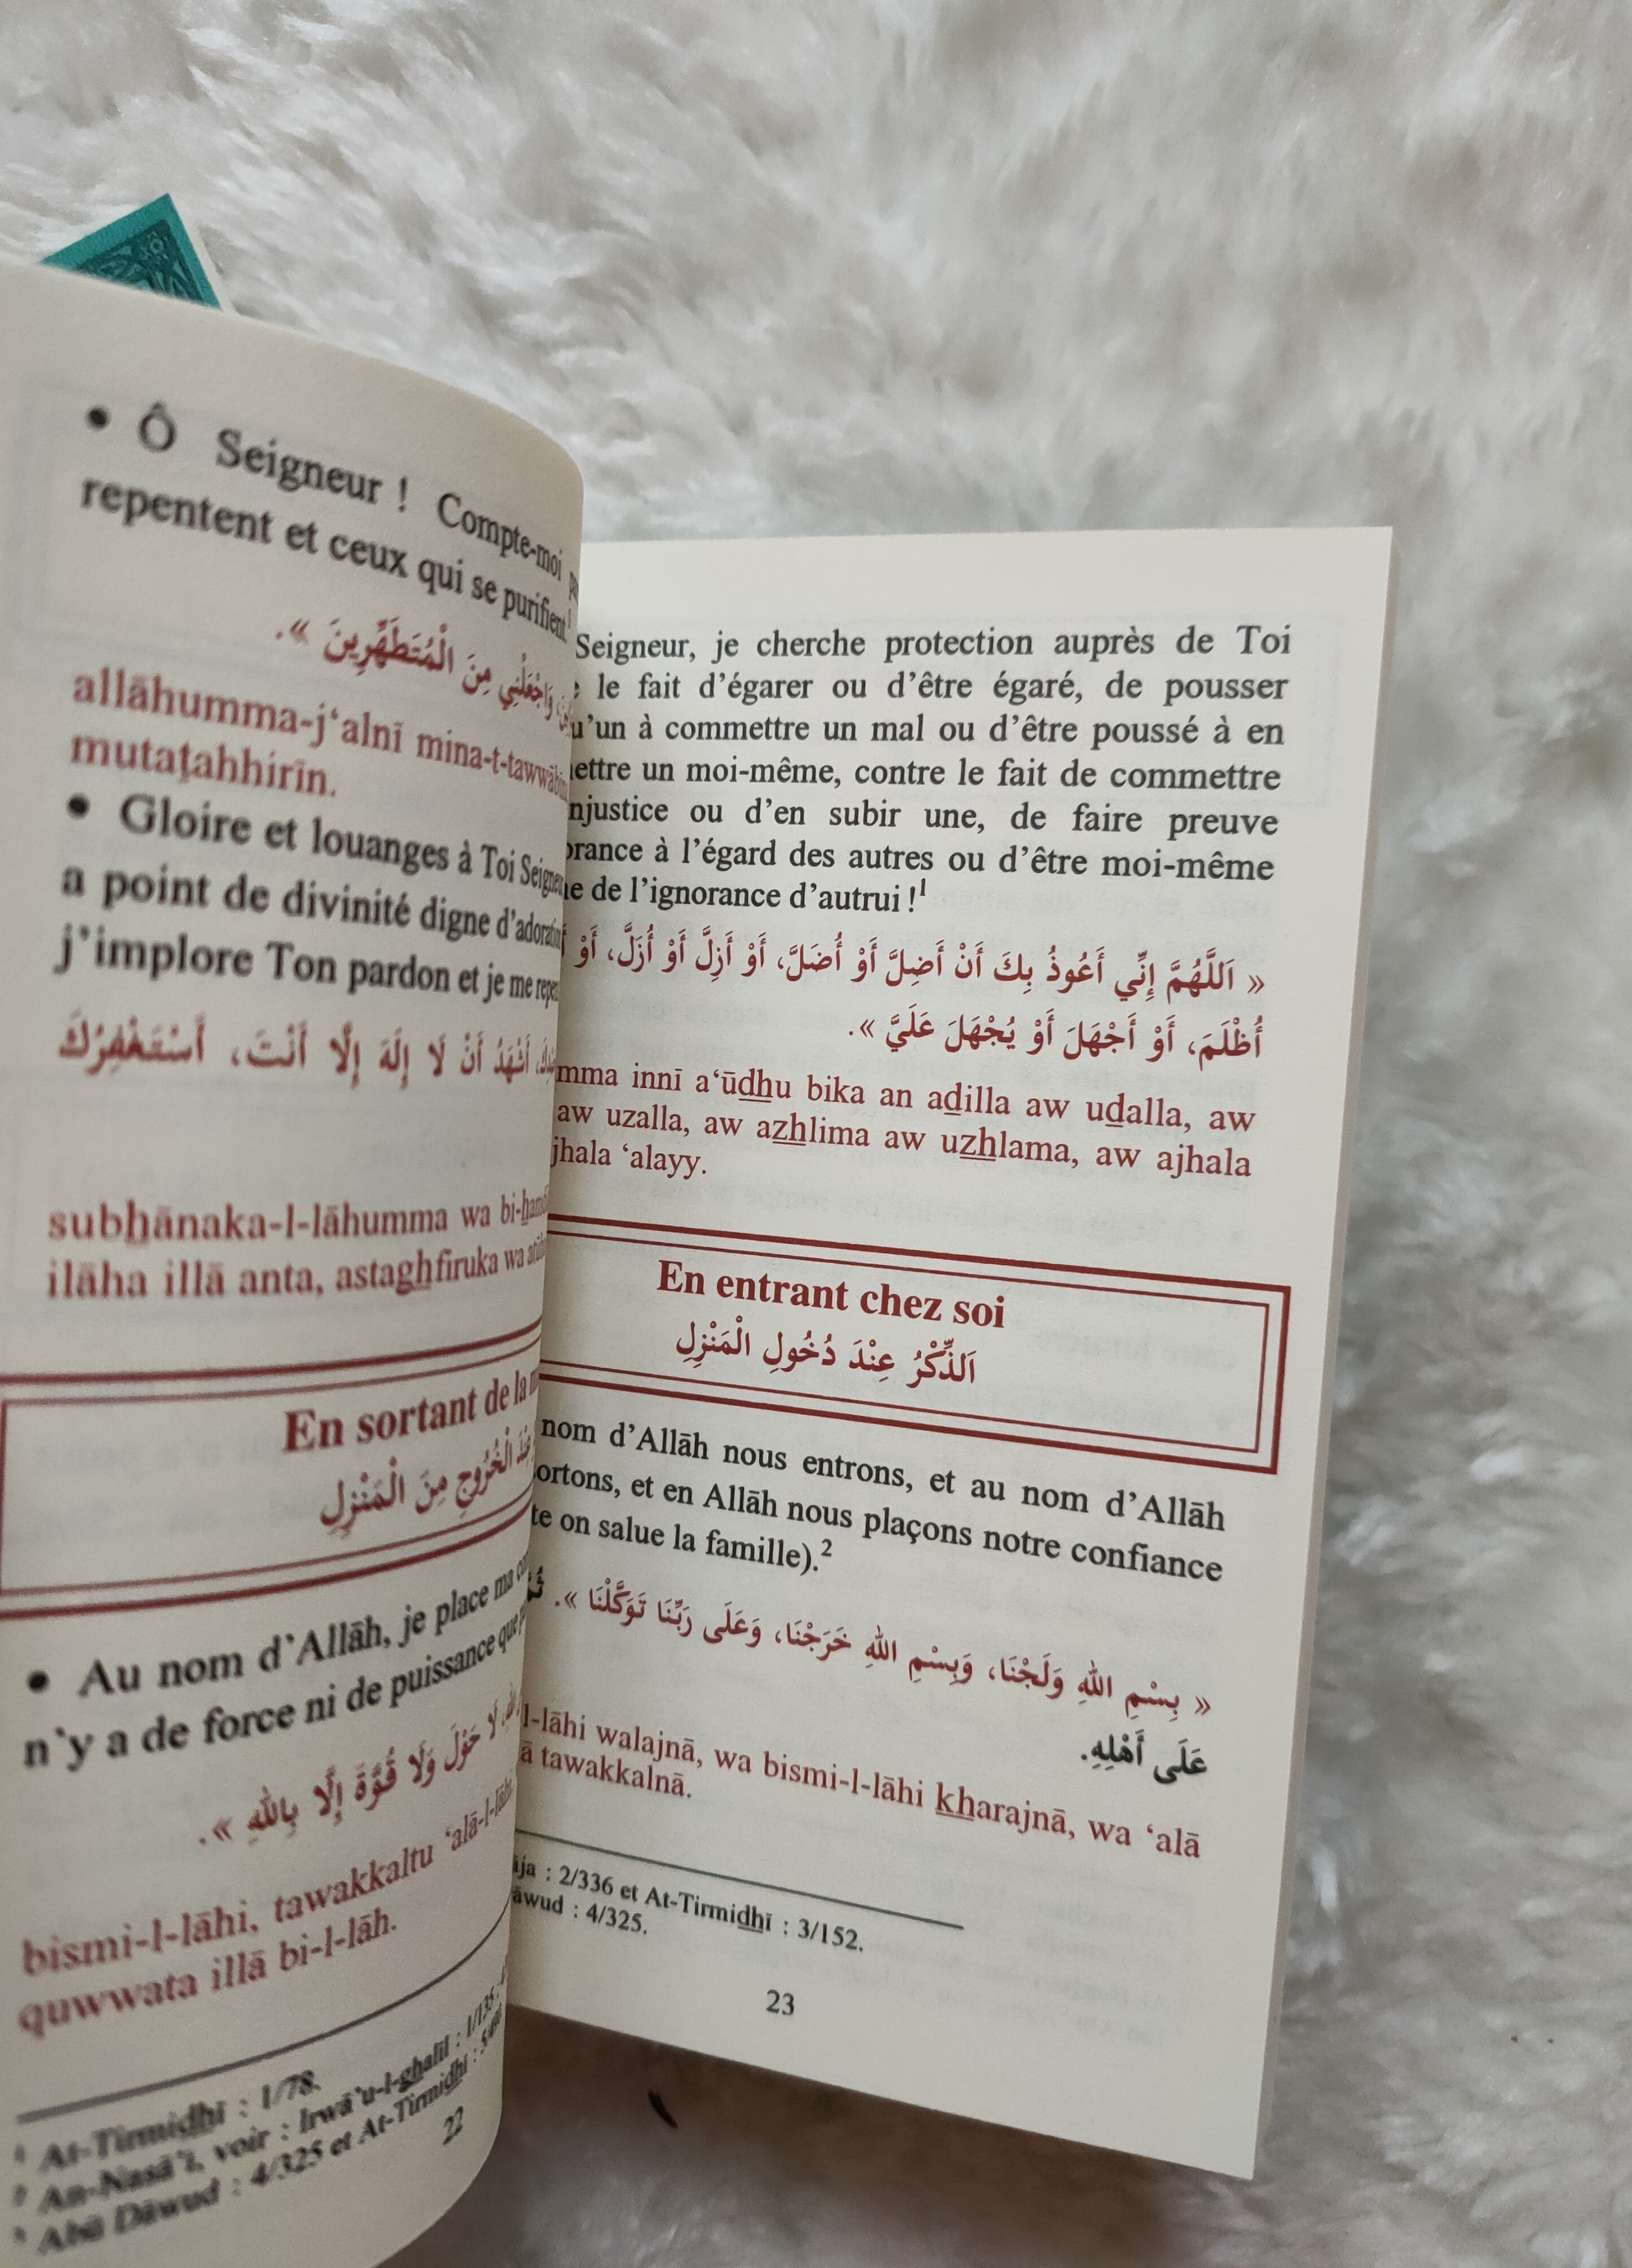 • Ô Seigneur ! Compte-moi
repentent et ceux qui se purifient
وَاجْعَلْنِي مِنَ الْمُتَطَهِّرِينَ ».
allāhumma-j‘alnī mina-t-tawwābīn
mutaṭahhirīn.
• Gloire et louanges à Toi
a point de divinité digne
j’implore Ton pardon et je me
أَشْهَدُ أَنْ لَا إِلَهَ إِلَّا أَنْتَ، أَسْتَغْفِرُكَ
subḥānaka-l-lāhumma wa
ilāha illā anta, astaghfiruka wa
En sortant de la
الْخُرُوجِ مِنَ الْمَنْزِلِ
• Au nom d’Allāh, je place ma
n’y a de force ni de puissance que
لَا حَوْلَ وَلَا قُوَّةَ إِلَّا بِاللهِ ».
bismi-l-lāhi, tawakkaltu ‘alā-l-lāhi
quwwata illā bi-l-lāh.
¹ At-Tirmidhī : 1/78.
² An-Nasā’ī, voir : Irwā’u-l-ghalīl : 1/135
³ Abū Dāwud : 4/325 et At-Tirmidhī :
22
Seigneur, je cherche protection auprès de Toi
le fait d’égarer ou d’être égaré, de pousser
u’un à commettre un mal ou d’être poussé à en
ettre un moi-même, contre le fait de commettre
njustice ou d’en subir une, de faire preuve
orance à l’égard des autres ou d’être moi-même
e de l’ignorance d’autrui !¹
« اَللَّهُمَّ إِنِّي أَعُوذُ بِكَ أَنْ أَضِلَّ أَوْ أُضَلَّ، أَوْ أَزِلَّ أَوْ أُزَلَّ، أَوْ
أُظْلَمَ، أَوْ أَجْهَلَ أَوْ يُجْهَلَ عَلَيَّ ».
mma innī a‘ūdhu bika an aḍilla aw uḍalla, aw
aw uzalla, aw azhlima aw uzhlama, aw ajhala
jhala ‘alayy.
En entrant chez soi
اَلذِّكْرُ عِنْدَ دُخُولِ الْمَنْزِلِ
nom d’Allāh nous entrons, et au nom d’Allāh
ortons, et en Allāh nous plaçons notre confiance
te on salue la famille).²
« بِسْمِ اللهِ وَلَجْنَا، وَبِسْمِ اللهِ خَرَجْنَا، وَعَلَى رَبِّنَا تَوَكَّلْنَا ».
عَلَى أَهْلِهِ.
l-lāhi walajnā, wa bismi-l-lāhi kharajnā, wa ‘alā
ā tawakkalnā.
āja : 2/336 et At-Tirmidhī : 3/152.
āwud : 4/325.
23